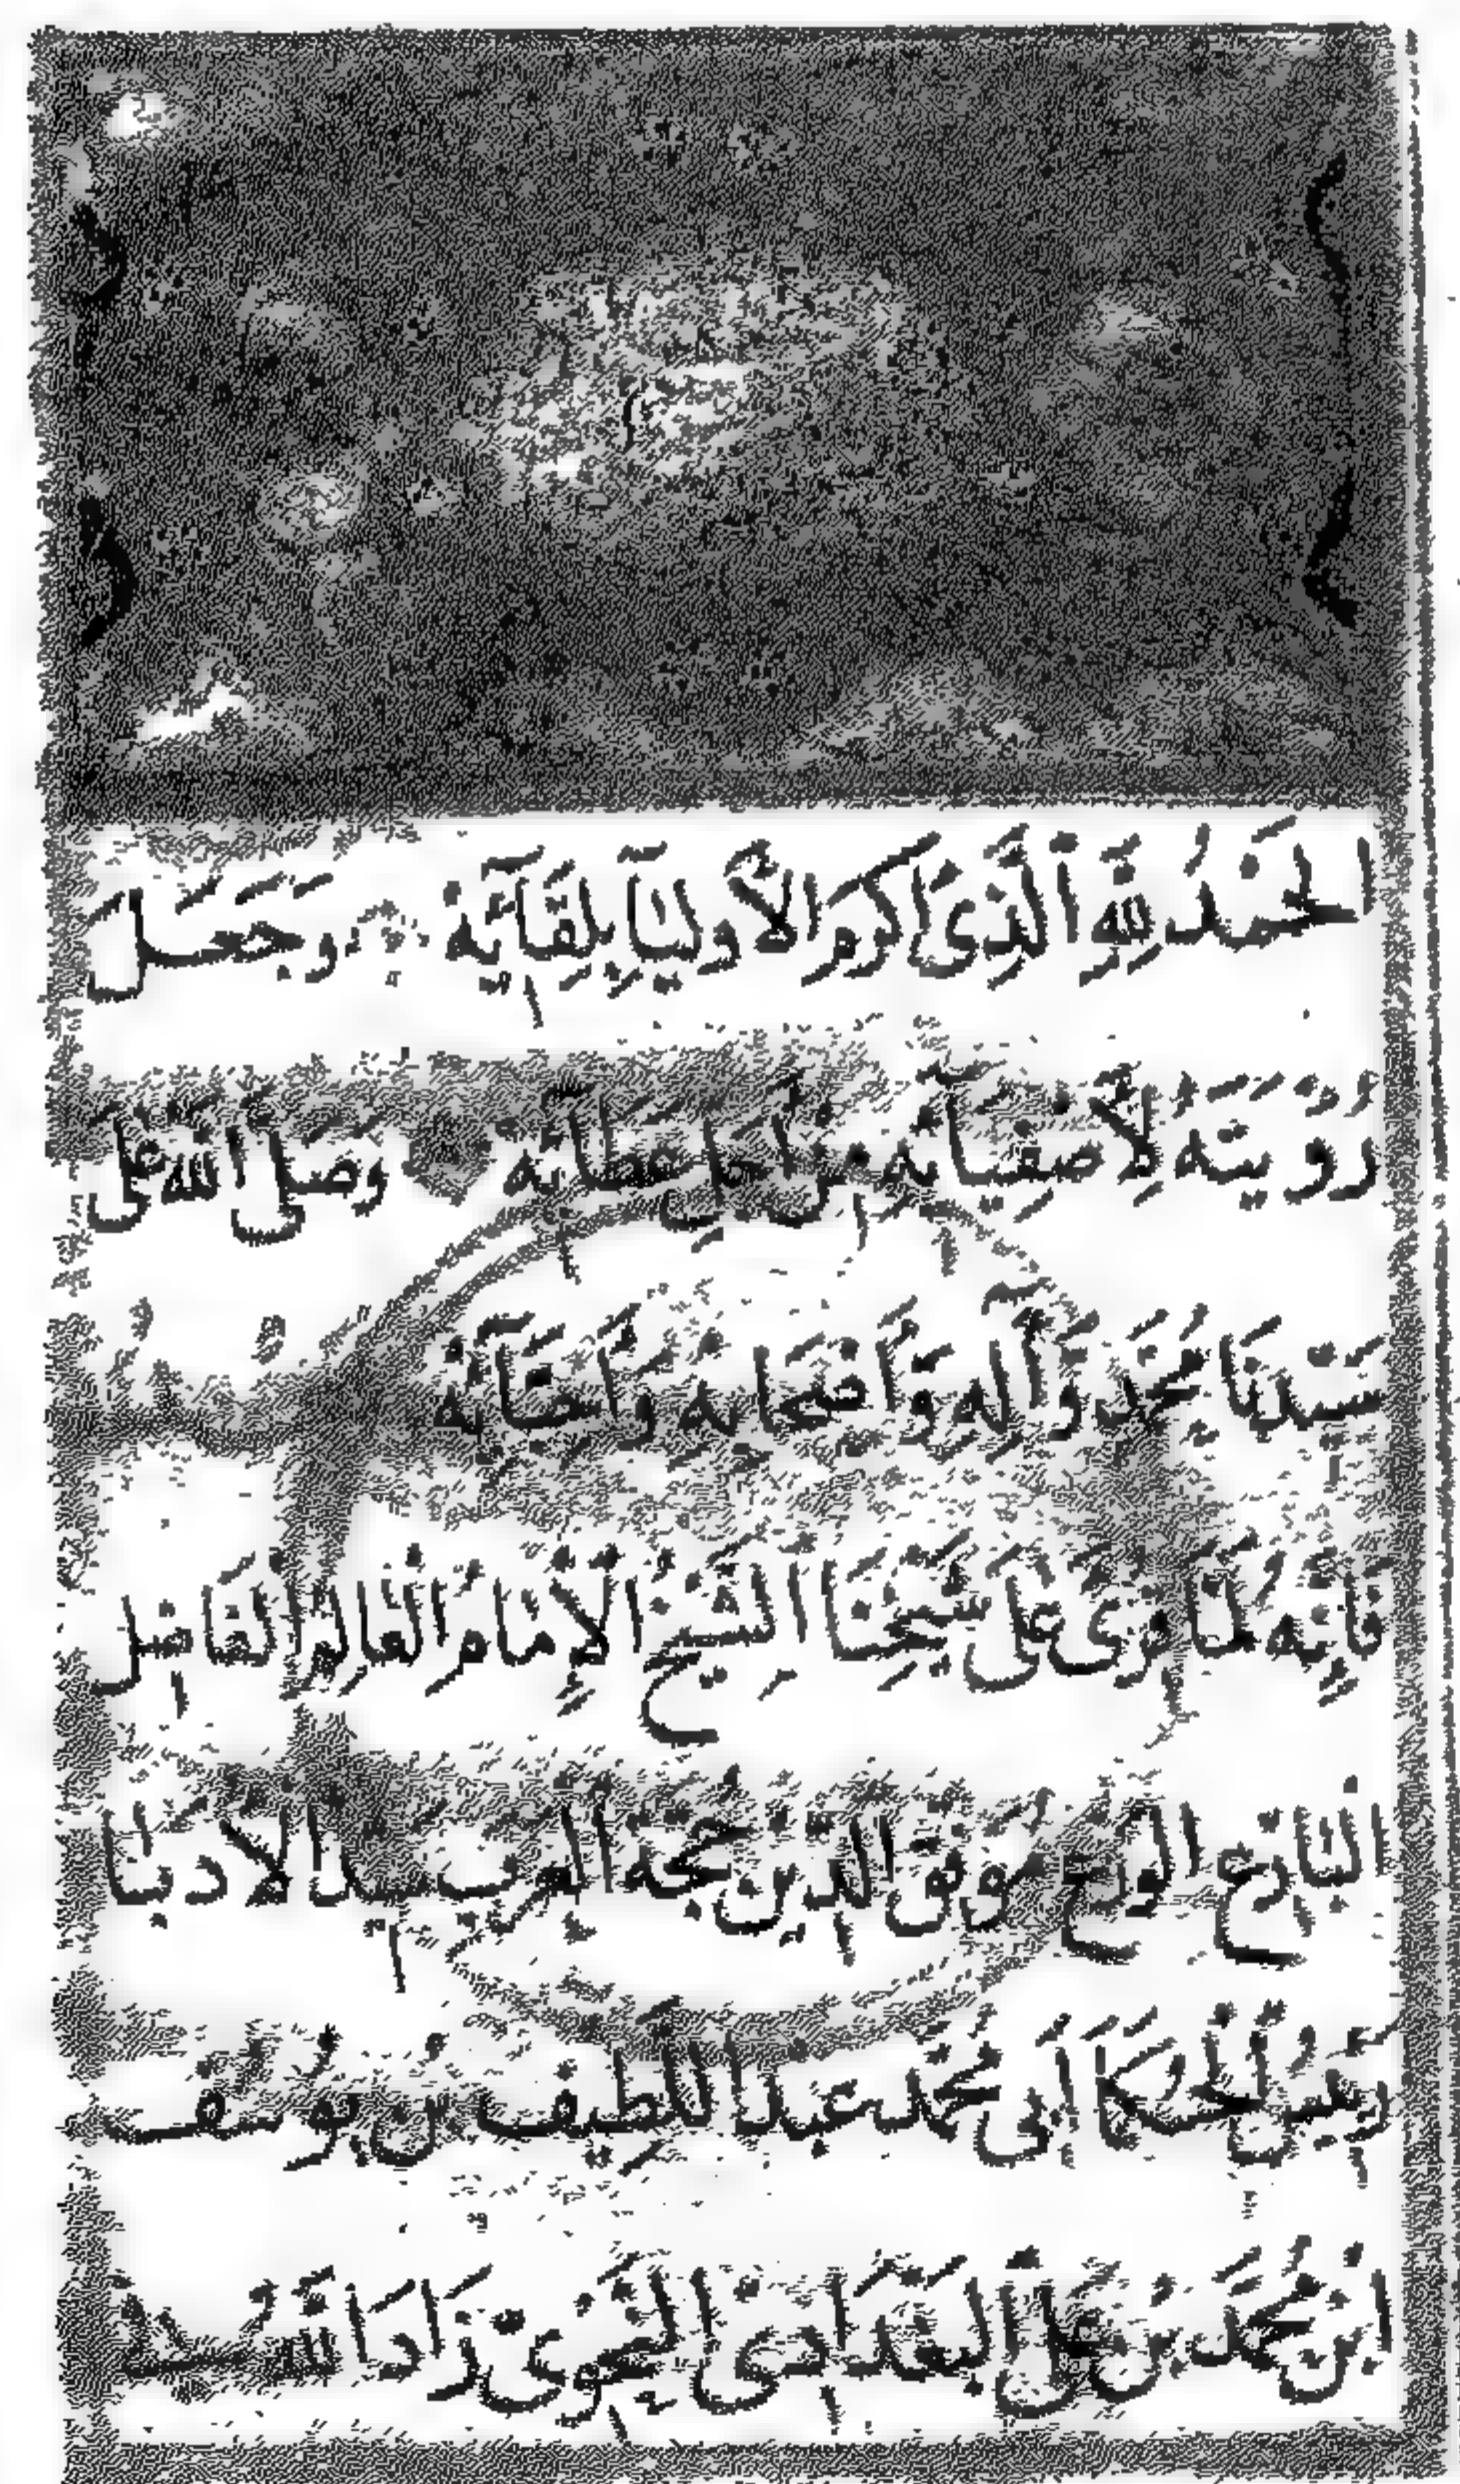 الحَمْدُ لِلَّهِ ٱلَّذِي أَكْرَمَ الأَوْلِيَآءَ بِلِقَآئِهِ وَجَعَلَ
رُؤْيَتَهُ لِأَصْفِيَائِهِ مِنْ أَجَلِّ عَطَآئِهِ وَصَلَّى اللهُ عَلَى
سَيِّدِنَا مُحَمَّدٍ وَآلِهِ وَأَصْحَابِهِ وَأَحِبَّآئِهِ
فَإِنَّهُ لَمَّا قُرِئَ عَلَى شَيْخِنَا الشَّيْخِ الإِمَامِ العَالِمِ الفَاضِلِ
البَارِعِ الوَرِعِ مُوَفَّقِ الدِّينِ حُجَّةِ العَرَبِ سَيِّدِ الأُدَبَا
رَئِيسِ الْحُكَمَا أَبِي مُحَمَّد عَبْدِ اللَّطِيفِ بْنِ يُوسُفَ
ابْنِ مُحَمَّدِ بْنِ عَلِيٍّ البَغْدَادِيِّ النَّحْوِيِّ زَادَ اللهُ